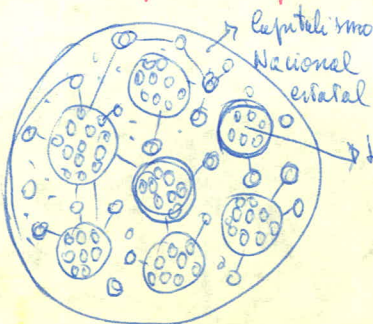 Capitalismo
Nacional
estatal